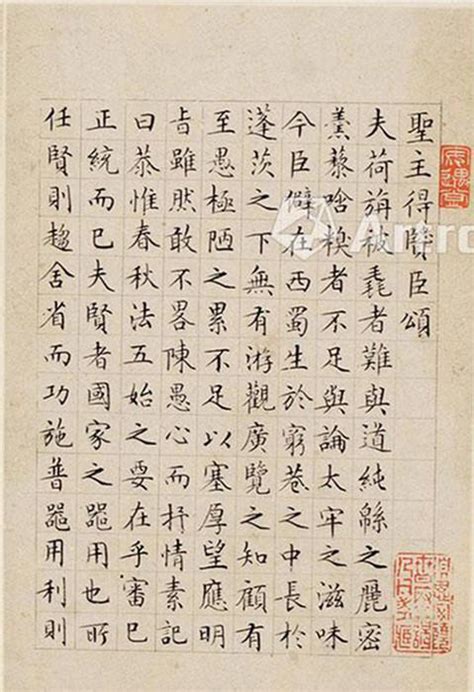 聖主得賢臣頌
夫荷旃被毳者難與道純緜之麗密
羹藜唅糗者不足與論太牢之滋味
今臣僻在西蜀生於窮巷之中長於
蓬茨之下無有游觀廣覽之知顧有
至愚極陋之累不足以塞厚望應明
旨雖然敢不畧陳愚心而抒情素記
曰恭惟春秋法五始之要在乎審已
正統而已夫賢者國家之噐用也所
任賢則趨舍省而功施普噐用利則